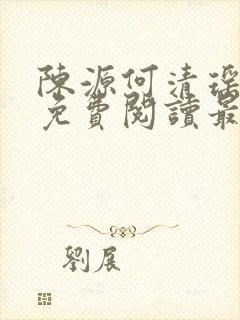 陳源何清瑤
免費閱讀最
劉展